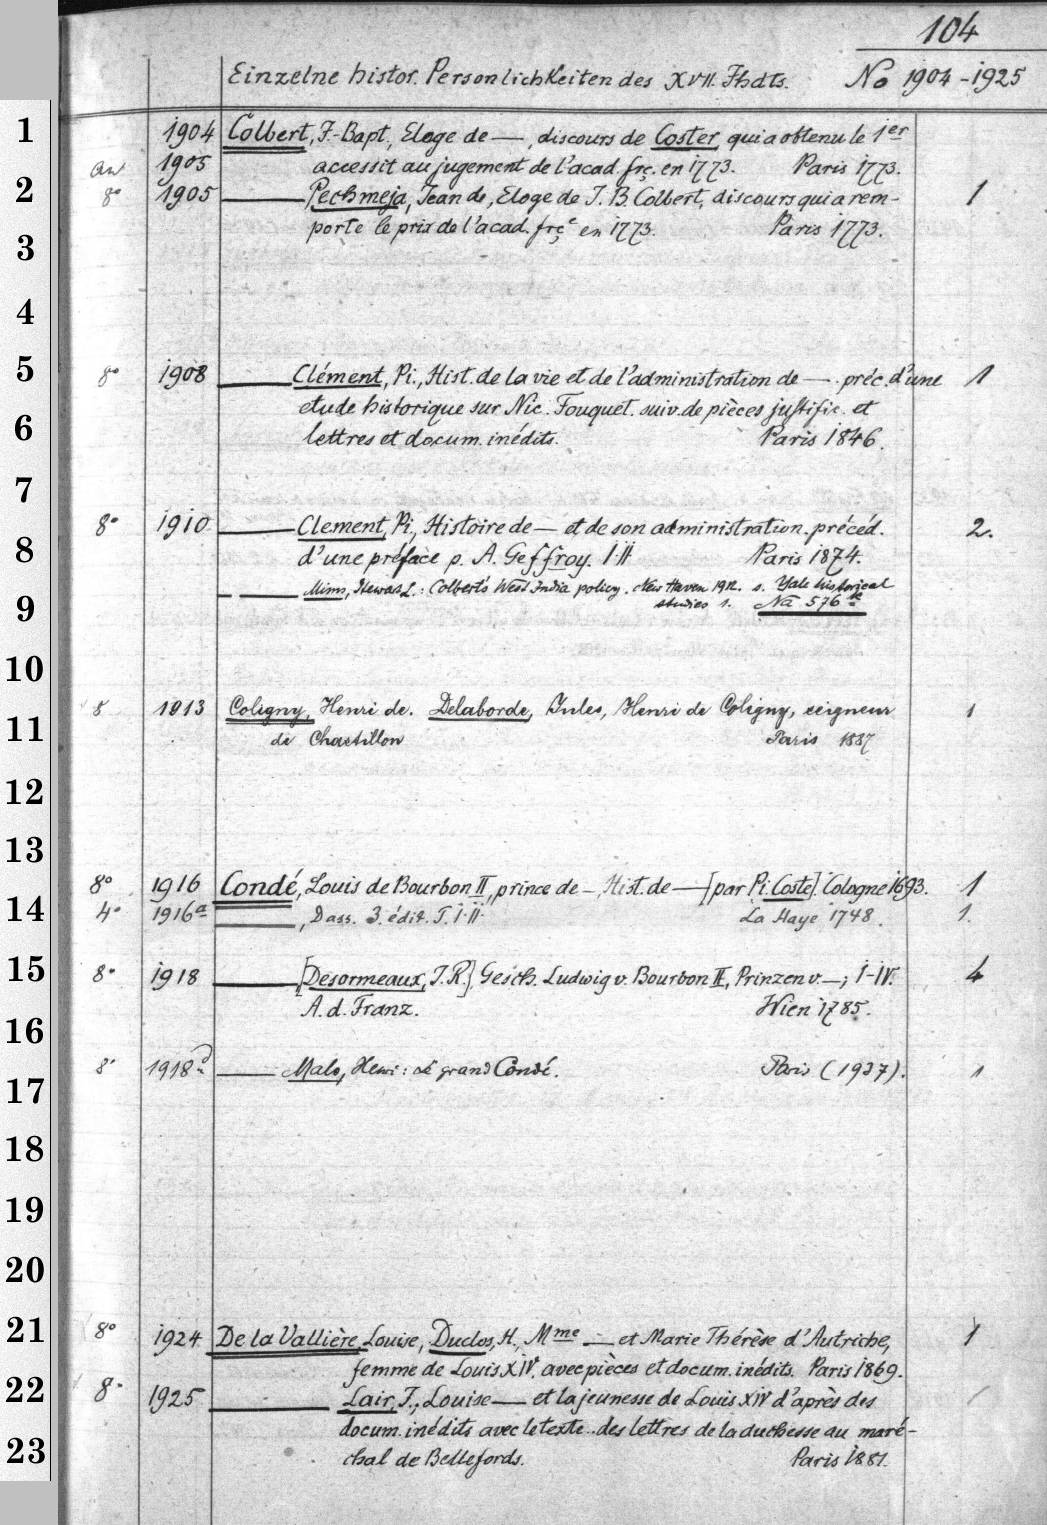 104
Einzelne histor. Persönlichkeiten des XVII. Jhdts. No 1904-1925
1904 Colbert, J.-Bapt., Eloge de —, discours de Coster, qui a obtenu le 1er
an 1905 accessit au jugement de l'acad. frç. en 1773. Paris 1773.
8° 1905 — Pechmeja, Jean de, Eloge de J. B. Colbert, discours qui a rem- 1
porte le prix de l'acad. frçe en 1773. Paris 1773.
8° 1908 — Clément, Pi., Hist. de la vie et de l'administration de — préc. d'une 1
etude historique sur Nic. Fouquet. suiv. de pièces justific. et
lettres et docum. inédits. Paris 1846.
8° 1910 — Clement, Pi., Histoire de — et de son administration. précéd. 2.
d'une préface p. A. Geffroy. I-II Paris 1874.
— — Mims, Stewart L.: Colbert's West India policy. New Haven 1912. s. Yale historical
studies 1. Na 576 k
8 1913 Coligny, Henri de. Delaborde, Jules, Henri de Coligny, seigneur 1
de Chastillon Paris 1887
8° 1916 Condé, Louis de Bourbon II, prince de —, Hist. de — [par Pi. Coste]. Cologne 1693. 1
4° 1916a —, Dass. 3. édit. T. I-II. La Haye 1748. 1.
8° 1918 — [Desormeaux, J. R.] Gesch. Ludwig v. Bourbon II, Prinzen v. —; I-IV. 4
A. d. Franz. Wien 1785.
8° 1918 — Malo, Henri: Le grand Condé. Paris (1937). 1
8° 1924 De la Vallière, Louise, Duclos, H., Mme — et Marie Thérèse d'Autriche, 1
femme de Louis XIV. avec pièces et docum. inédits. Paris 1869.
8° 1925 — Lair, J., Louise — et la jeunesse de Louis XIV d'après des 1
docum. inédits avec le texte .. des lettres de la duchesse au maré-
chal de Bellefords. Paris 1881.
1
2
3
4
5
6
7
8
9
10
11
12
13
14
15
16
17
18
19
20
21
22
23